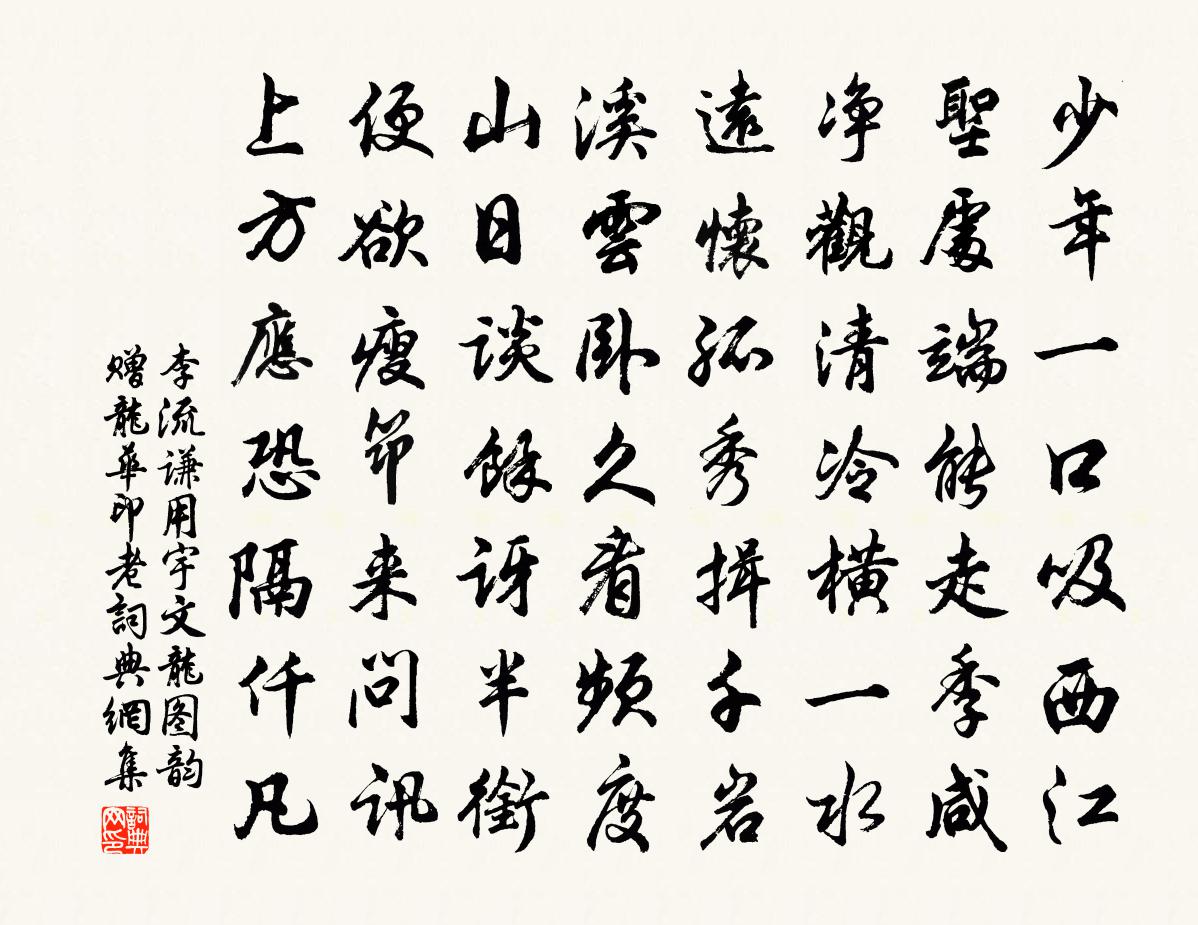 少年一口吸西江
聖處端能走季咸
净觀清冷横一水
遠懷孤秀揖千岩
溪雲臥久看頻度
山日談餘訝半銜
便欲瘦筇来問訊
上方應恐隔仟凡
李流谦用宇文龍图韵
赠龍華印老詞典網集
詞典